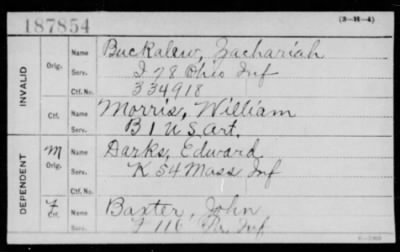 187854
(3-H-4)
INVALID
Orig.
Name Buckalew, Zachariah
Serv. I 78 Ohio Inf
Ctf. No. 334918
Ctf.
Name Morris, William
Serv. B 1 U S art.
DEPENDENT
M
Orig.
Name Darks, Edward
Serv. K 54 Mass Inf
Ctf. No.
F
Ctf.
Name Baxter, John
Serv. F 116 Pa Inf